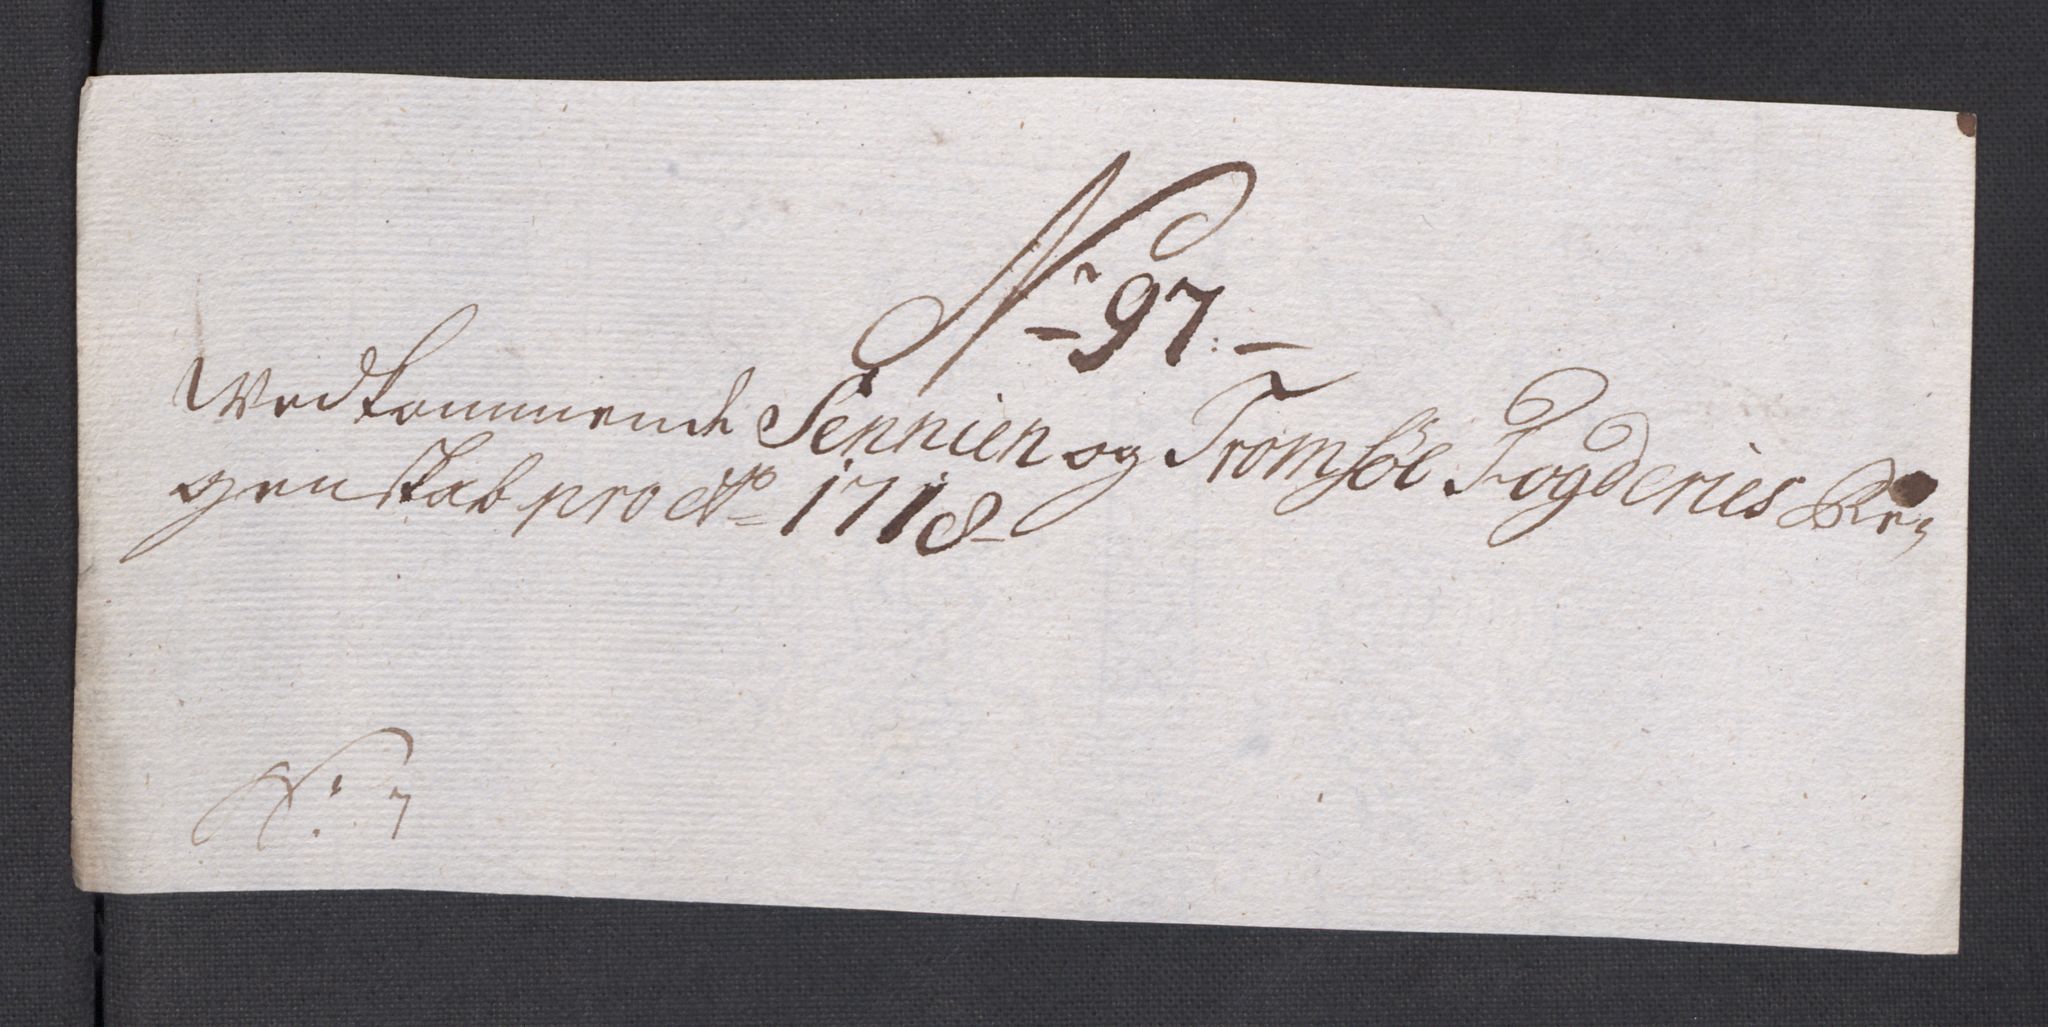 No 97.
Vedkommende Sennien og Tromsöe Fogderies Re,
genskab pro Ao 1718
No. 7